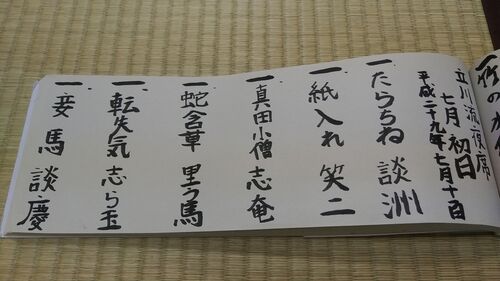 立川流夜席
七月初日
平成二十九年七月十日
一、たらちね 談洲
一、紙入れ 笑二
一、真田小僧 志奄
一、蛇含草 里う馬
一、転失気 志ら玉
一、妾馬 談慶